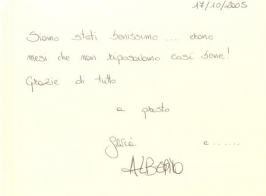 17/10/2005
Siamo stati benissimo ... erano
mesi che non riposavamo così bene!
Grazie di tutto
a presto
e ......
ALBERTO